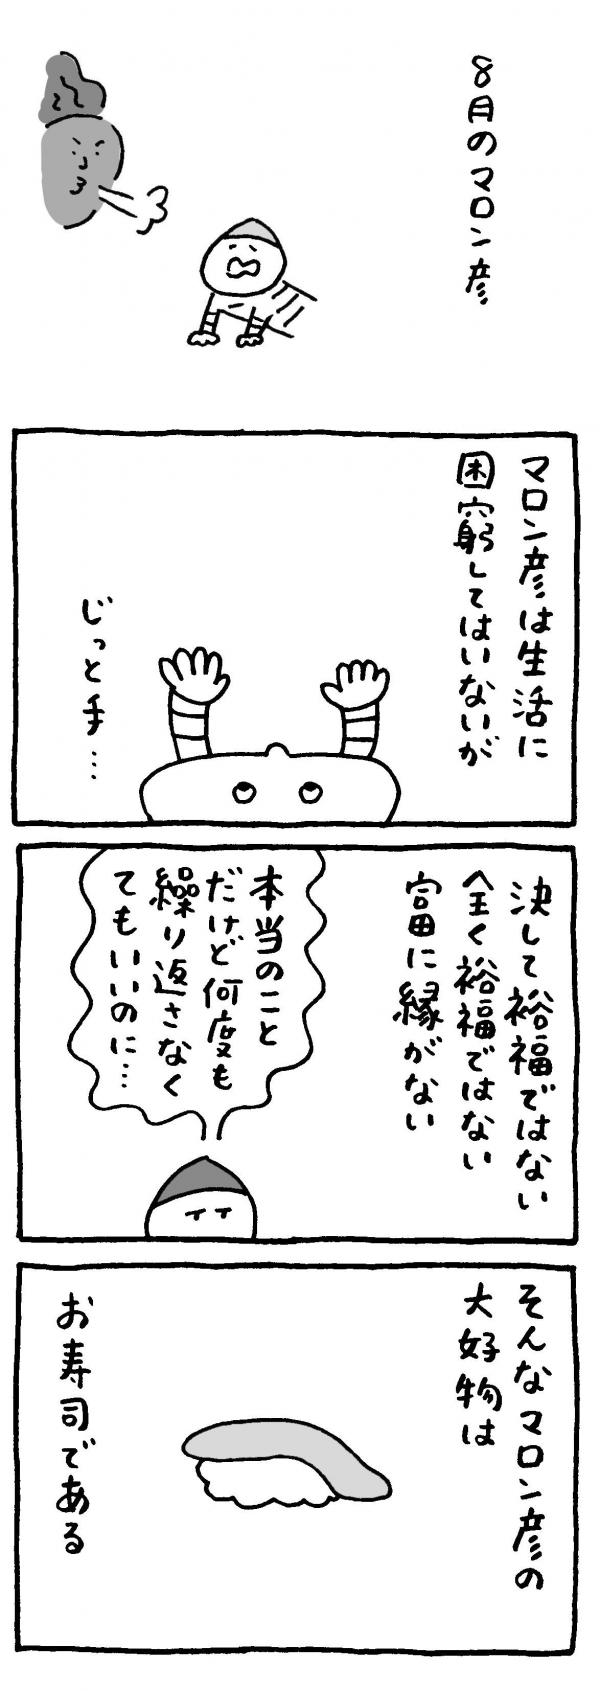 8月のマロン彦
マロン彦は生活に
困窮してはいないが
じっと手…
決して裕福ではない
全く裕福ではない
富に縁がない
本当のこと
だけど何度も
繰り返さなく
てもいいのに…
そんなマロン彦の
大好物は
お寿司である